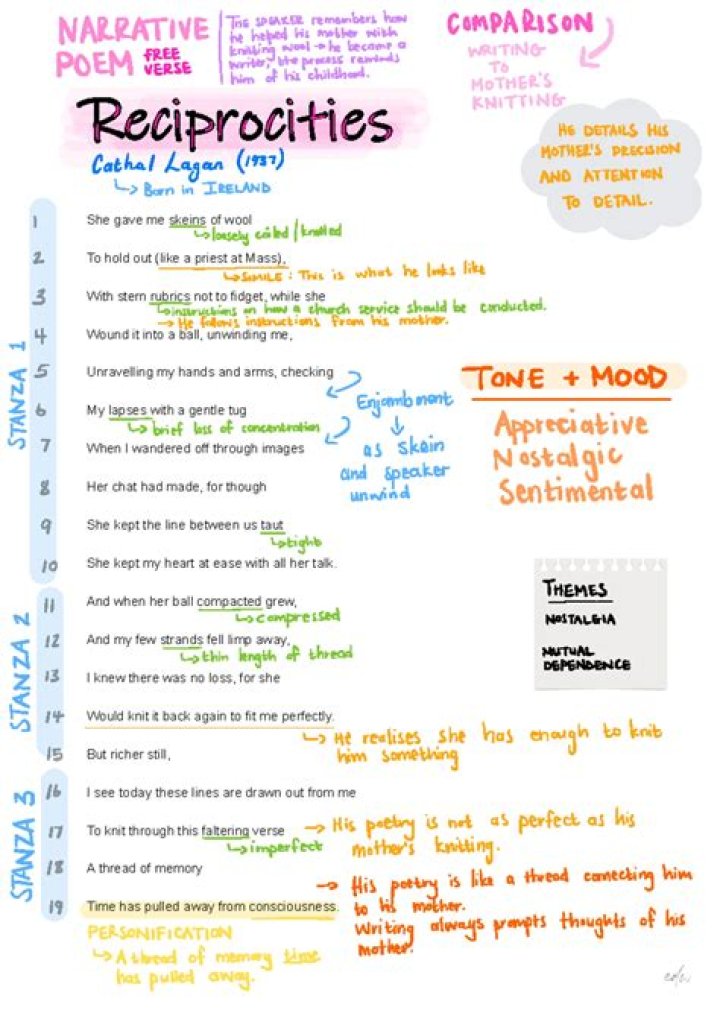 NARRATIVE
POEM FREE
VERSE
THE SPEAKER remembers how
he helped his mother with
knitting wool → he became a
writer, the process reminds
him of his childhood.
COMPARISON
WRITING
TO
MOTHER'S
KNITTING
HE DETAILS HIS
MOTHER'S PRECISION
AND ATTENTION
TO DETAIL.
Reciprocities
Cathal Lagan (1937)
↳ Born in IRELAND
STANZA 1
1 She gave me skeins of wool
↳ loosely coiled/knotted
2 To hold out (like a priest at Mass),
↳ SIMILE: This is what he looks like
3 With stern rubrics not to fidget, while she
↳ instructions on how a church service should be conducted.
→ He follows instructions from his mother.
4 Wound it into a ball, unwinding me,
5 Unravelling my hands and arms, checking
6 My lapses with a gentle tug
↳ brief loss of concentration
7 When I wandered off through images
8 Her chat had made, for though
9 She kept the line between us taut
↳ tight
10 She kept my heart at ease with all her talk.
Enjambment
↓
as skein
and speaker
unwind
TONE + MOOD
Appreciative
Nostalgic
Sentimental
THEMES
NOSTALGIA
MUTUAL
DEPENDENCE
STANZA 2
11 And when her ball compacted grew,
↳ compressed
12 And my few strands fell limp away,
↳ thin length of thread
13 I knew there was no loss, for she
14 Would knit it back again to fit me perfectly.
↳ He realises she has enough to knit
him something
15 But richer still,
STANZA 3
16 I see today these lines are drawn out from me
17 To knit through this faltering verse
↳ imperfect
→ His poetry is not as perfect as his
mother's knitting.
18 A thread of memory
19 Time has pulled away from consciousness.
→ His poetry is like a thread connecting him
to his mother.
Writing always prompts thoughts of his
mother.
PERSONIFICATION
↳ A thread of memory time
has pulled away.